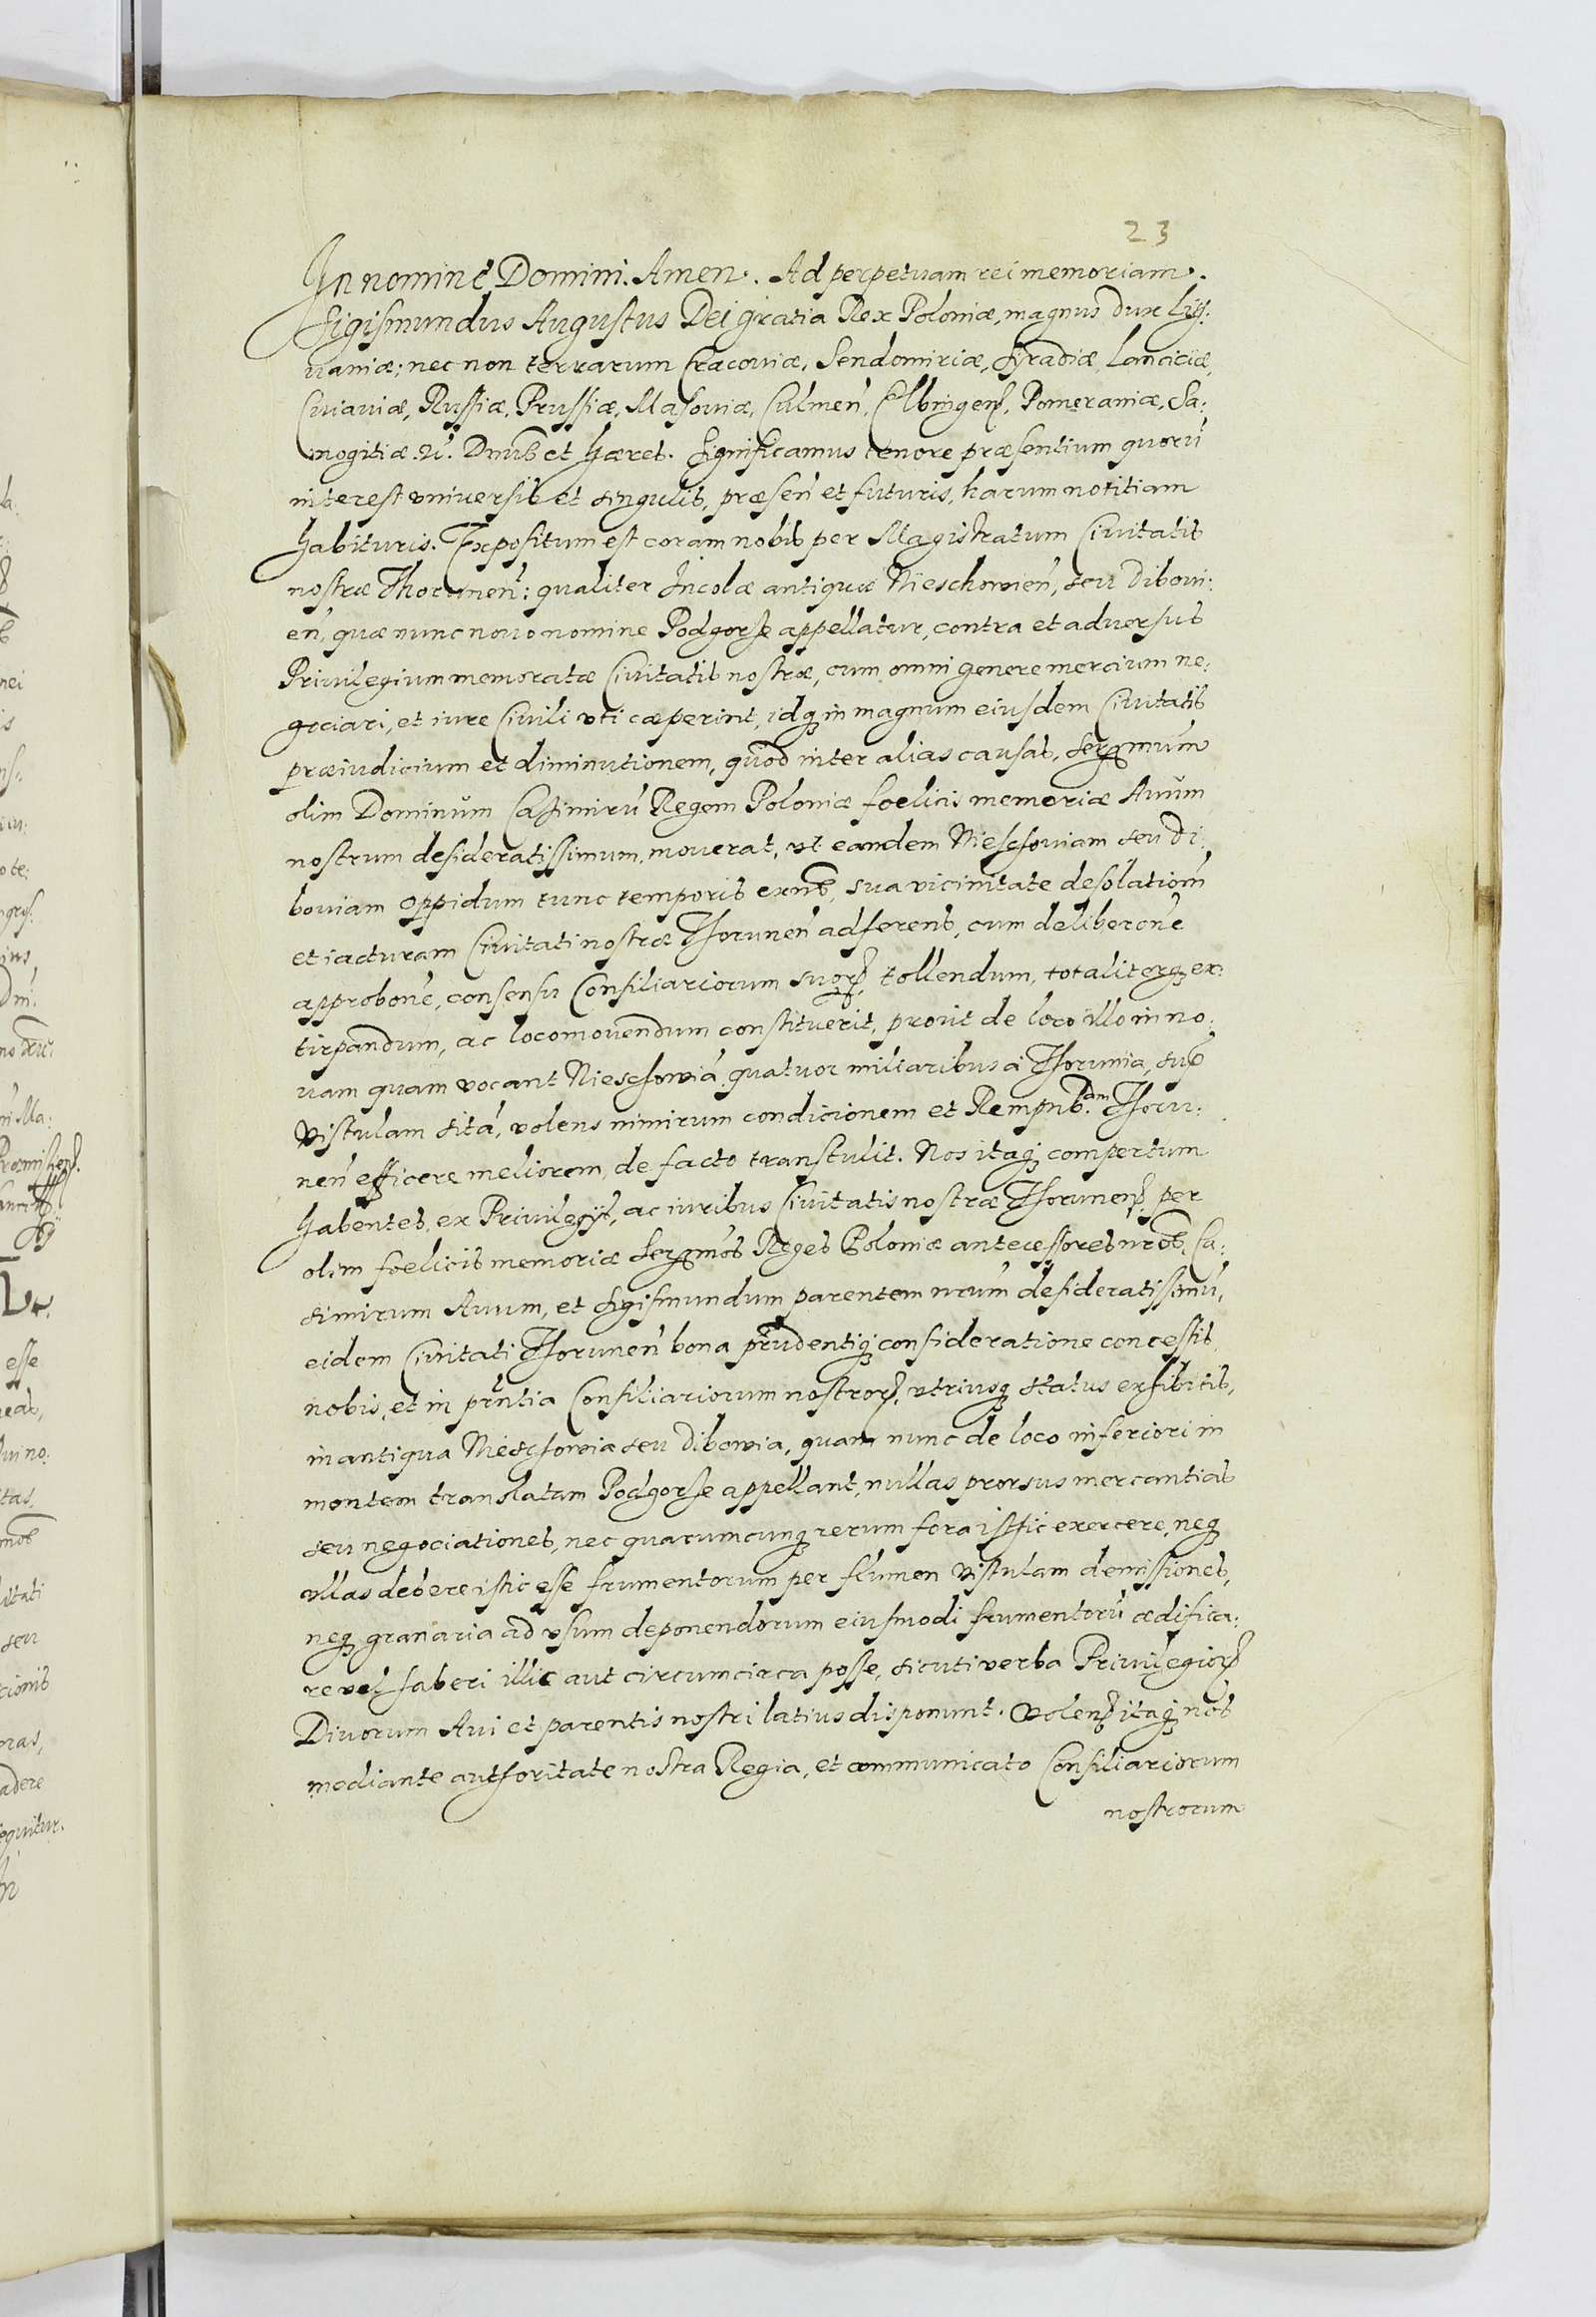 23
In nomine Domini. Amen. Ad perpetuam rei memoriam.
Sigismundus Augustus Dei gratia Rex Poloniæ, magnus dux Lith:
uaniæ; nec non terrarum Cracouiæ, Sendomiriæ, Syradiæ, Lanciciæ,
Cuiauiæ, Russiæ, Prussiæ, Masouiæ, Culmeñ, Elbingens̃, Pomeraniæ, Sa:
mogitiæ. Dn̄us et Hæres. Significamus tenore præsentium quorū
interest vniuersis et singulis, præseñ et futuris, harum notitiam
habituris. Expositum est coram nobis per Magistratum Ciuitatis
nostræ Thoruneñ: qualiter Incolæ antiquæ Nieschowieñ, seu Diboui:
eñ, quæ nunc nouo nomine Podgorze appellatur, contra et aduersus
Priuilegium memoratæ Ciuitatis nostræ, cum omni genere mercium ne:
gociari, et iure Ciuili vti cæperint, idq; in magnum eiusdem Ciuitatis
præiudicium et diminutionem, quod inter alias causas, Serenissmūm
olim Dominum Casimirū Regem Poloniæ foelicis memoriæ Auum
nostrum desideratissimum, mouerat, vt eandem Nieschouiam seu Di:
bouiam oppidum tunc temporis exn̄s, sua vicinitate desolationē
et iacturam Ciuitati nostræ Thoruneñ adferens, cum deliberōne
approbōne, consensu Consiliariorum suorꝝ, tollendum, totaliterq; ex:
tirpandum, ac locomouendum constituerit, prout de loco illo in no:
uam quam vocant Nieschowiā quatuor miliaribus a Thorunia, sup̄
Vistulam sitā, volens nimirum condicionem et Rempub.am Thoru:
neñ efficere meliorem, de facto transtulit. Nos itaq; compertum
habentes, ex Priuilegijs, ac iuribus Ciuitatis nostræ Thorunens̃, per
olim foelicis memoriæ Serenissmōs Reges Poloniæ antecessores nr̄os, Ca:
simirum Auum, et Sigismundum parentem nr̄um desideratissimū,
eidem Ciuitati Thoruneñ bona prudentiq; consideratione concessis,
nobis, et in pr̄ntia Consiliariorum nostrorꝝ, vtriusq; status exhibitis,
in antiqua Nieschowia seu Dibowia, quam nunc de loco inferiori in
montem translatam Podgorze appellant, nullas prorsus mercantias
seu negociationes, nec quarumcunq; rerum fora isthic exercere, neq;
vllas debere istic esse frumentorum per flumen Vistulam demissiones,
neq; granaria ad vsum deponendorum eiusmodi frumentorū ædifica:
re vel haberi illic aut circumcirca posse, sicuti verba Priuilegiorꝝ
Diuorum Aui et parentis nostri latius disponunt. Volens̃ itaq; nos
mediante authoritate nostra Regia, et communicato Consiliariorum
nostrorum